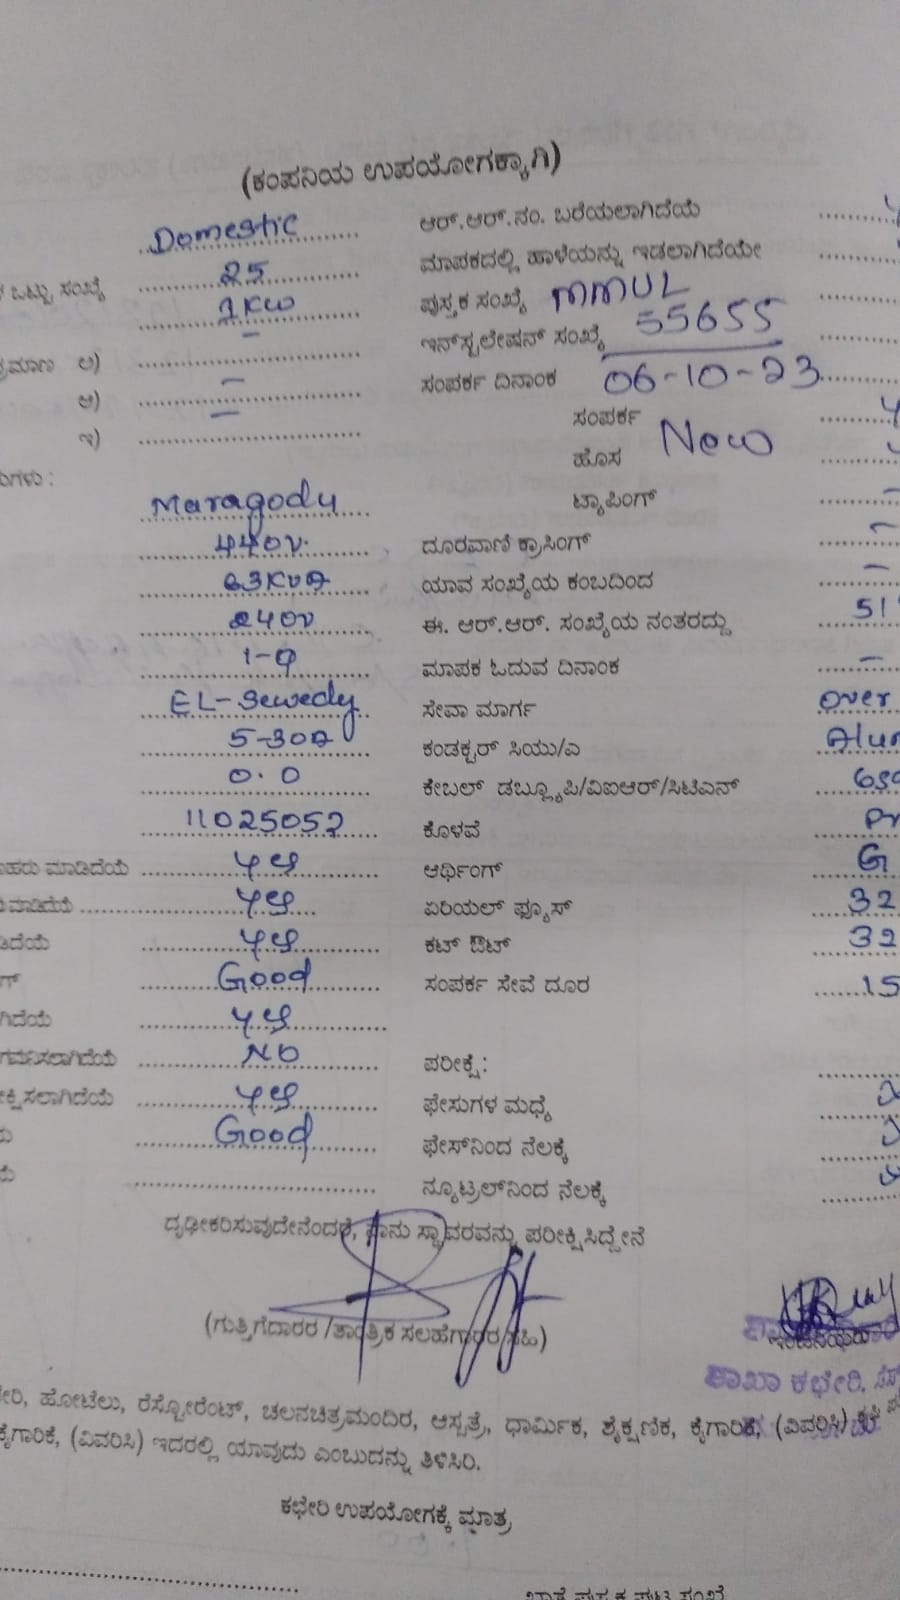 (ಕಂಪನಿಯ ಉಪಯೋಗಕ್ಕಾಗಿ)
Domestic ಆರ್.ಆರ್.ನಂ. ಬರೆಯಲಾಗಿದೆಯೆ
ಒಟ್ಟು ಸಂಖ್ಯೆ 25 ಮಾಪಕದಲ್ಲಿ ಹಾಳೆಯನ್ನು ಇಡಲಾಗಿದೆಯೇ
1KW ಪುಸ್ತಕ ಸಂಖ್ಯೆ MMUL
ಅ) – ಇನ್‌ಸ್ಟಲೇಷನ್ ಸಂಖ್ಯೆ 55655
ಆ) – ಸಂಪರ್ಕ ದಿನಾಂಕ 06-10-23
ಇ) – ಸಂಪರ್ಕ
ಹೊಸ New
Maragody ಟ್ಯಾಪಿಂಗ್ –
440V. ದೂರವಾಣಿ ಕ್ರಾಸಿಂಗ್ –
63KVA ಯಾವ ಸಂಖ್ಯೆಯ ಕಂಬದಿಂದ –
240V ಈ. ಆರ್.ಆರ್. ಸಂಖ್ಯೆಯ ನಂತರದ್ದು 51
1-Φ ಮಾಪಕ ಓದುವ ದಿನಾಂಕ –
EL-Sewedy ಸೇವಾ ಮಾರ್ಗ Over
5-30A ಕಂಡಕ್ಟರ್ ಸಿಯು/ಎ
0.0 ಕೇಬಲ್ ಡಬ್ಲ್ಯೂಪಿ/ವಿಐಆರ್/ಸಿಟಿಎನ್
11025052 ಕೊಳವೆ
ಮಾಡಿದೆಯೆ yes ಆರ್ಥಿಂಗ್ G
ಮಾಡಿದೆಯೆ yes ಏರಿಯಲ್ ಫ್ಯೂಸ್ 32
yes ಕಟ್ ಔಟ್ 32
Good ಸಂಪರ್ಕ ಸೇವೆ ದೂರ 15
yes
NO ಪರೀಕ್ಷೆ:
yes ಫೇಸುಗಳ ಮಧ್ಯೆ
Good ಫೇಸ್‌ನಿಂದ ನೆಲಕ್ಕೆ
ನ್ಯೂಟ್ರಲ್‌ನಿಂದ ನೆಲಕ್ಕೆ
ದೃಢೀಕರಿಸುವುದೇನೆಂದರೆ, ನಾನು ಸ್ಥಾವರವನ್ನು ಪರೀಕ್ಷಿಸಿದ್ದೇನೆ
(ಗುತ್ತಿಗೆದಾರರ /ತಾಂತ್ರಿಕ ಸಲಹೆಗಾರರ ಸಹಿ)
ಶಾಖಾ ಕಛೇರಿ,
ಹೋಟೆಲು, ರೆಸ್ಟೋರೆಂಟ್, ಚಲನಚಿತ್ರಮಂದಿರ, ಆಸ್ಪತ್ರೆ, ಧಾರ್ಮಿಕ, ಶೈಕ್ಷಣಿಕ, ಕೈಗಾರಿಕೆ, (ವಿವರಿಸಿ)
ಕೈಗಾರಿಕೆ, (ವಿವರಿಸಿ) ಇದರಲ್ಲಿ ಯಾವುದು ಎಂಬುದನ್ನು ತಿಳಿಸಿರಿ.
ಕಛೇರಿ ಉಪಯೋಗಕ್ಕೆ ಮಾತ್ರ